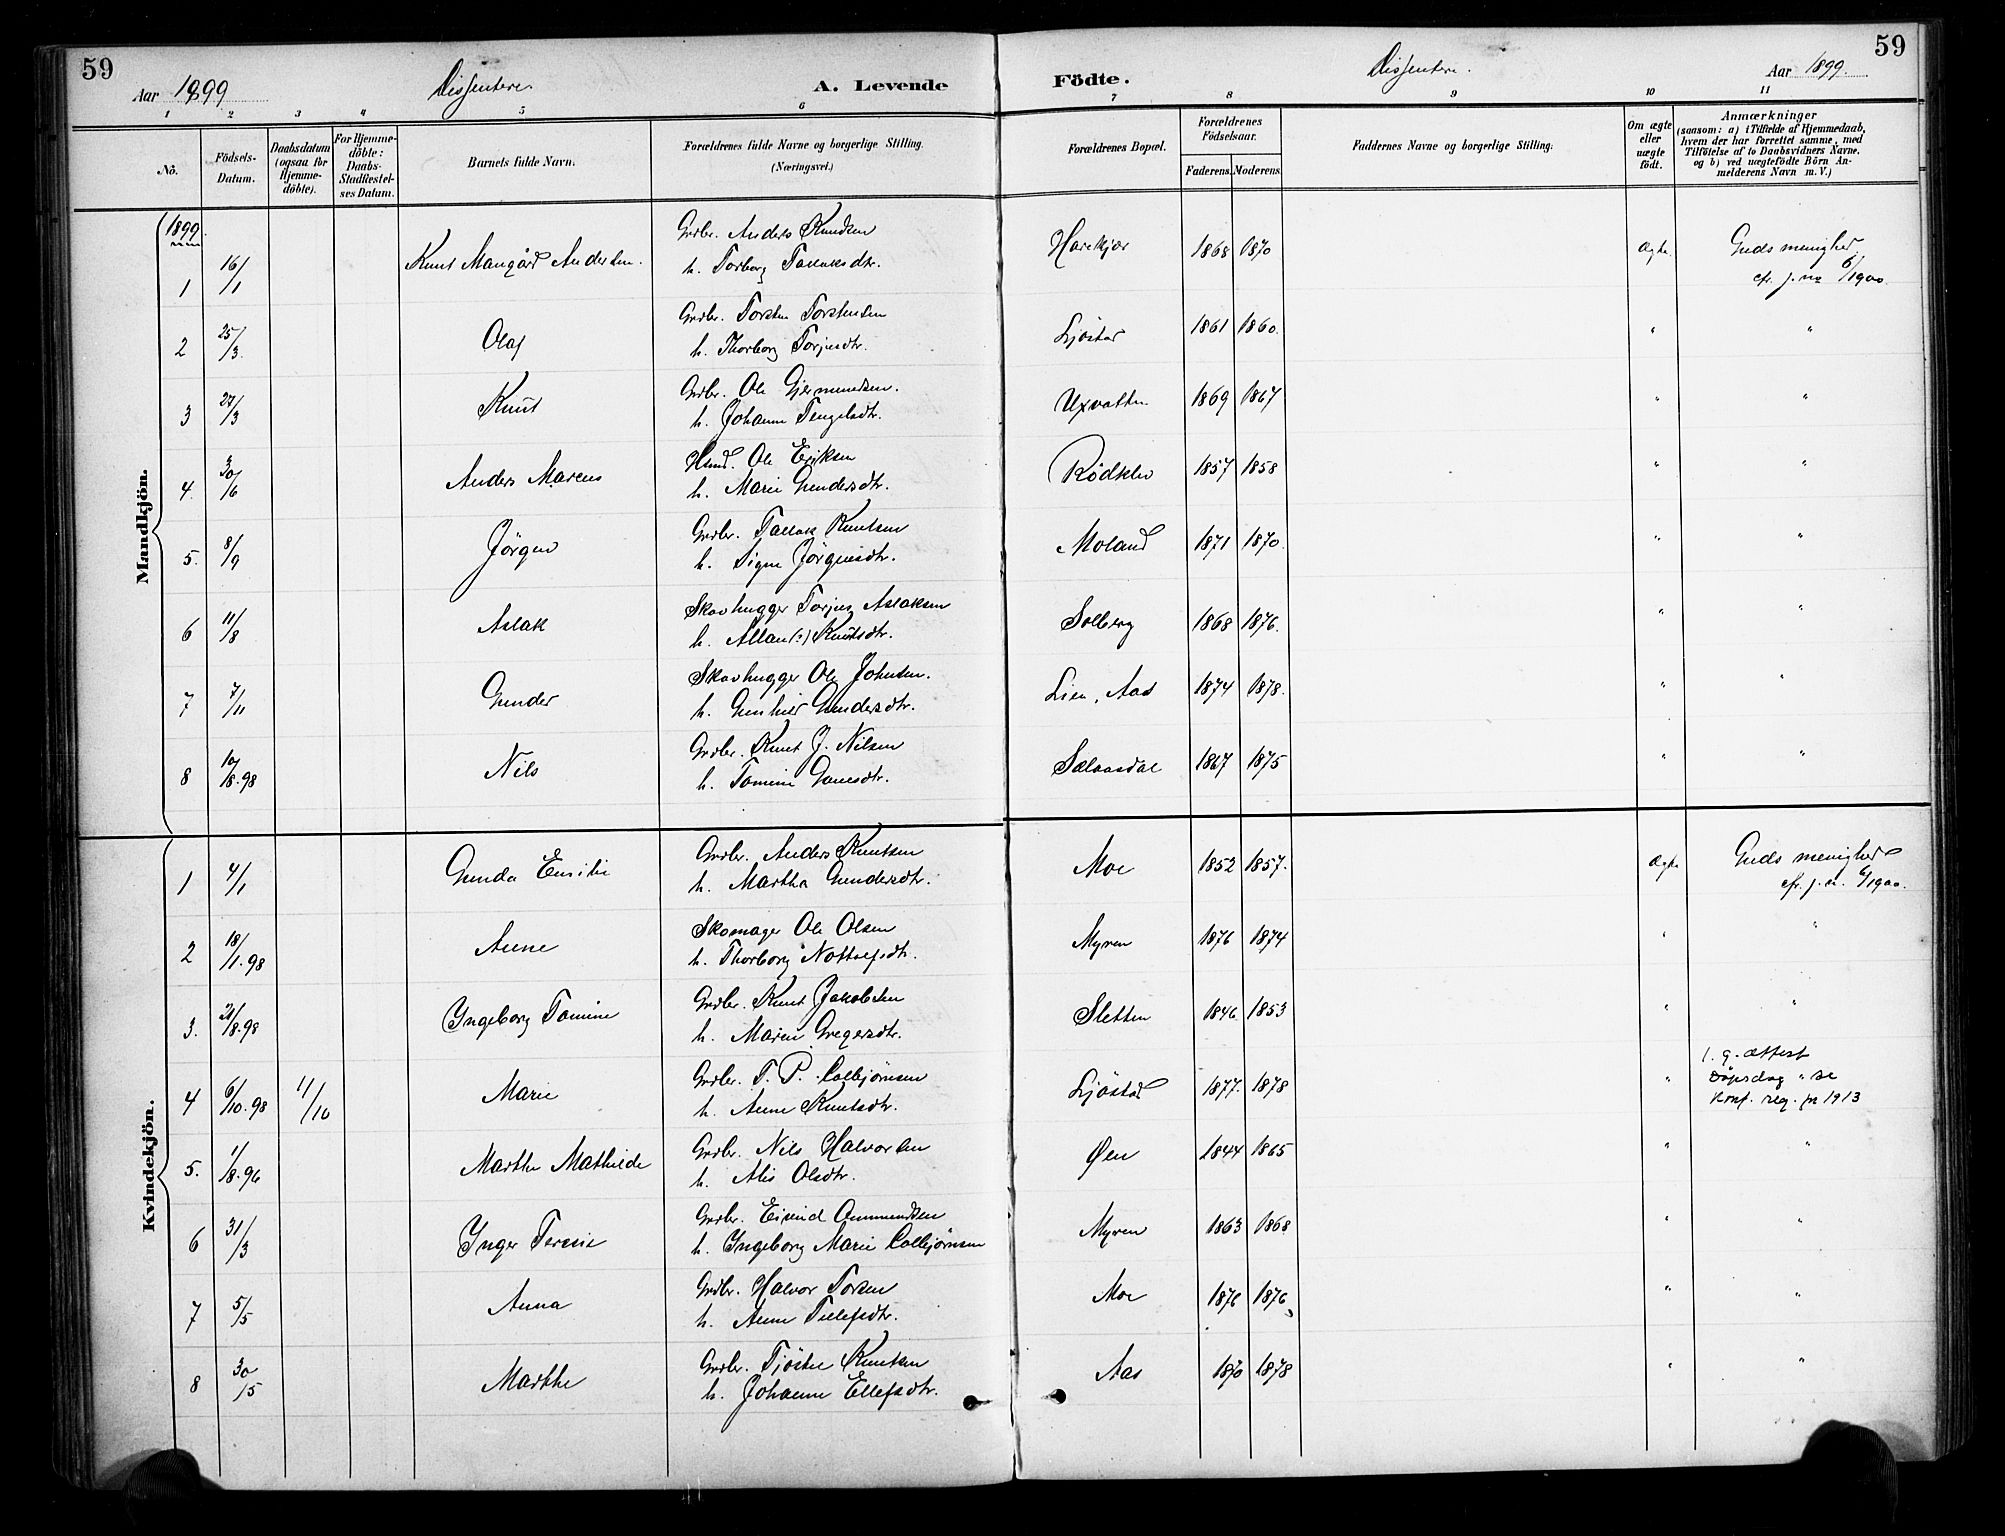 59
Aar 1899
Dissentere.
A. Levende
Födte.
Dissentere.
Aar 1899.
59
1 2 3 4 5 6 7 8 9 10 11
No.
Födsels-Datum.
Daabsdatum (ogsaa for Hjemmedöbte).
For Hjemmedöbte: Daabs-Stadfæstelses Datum.
Barnets fulde Navn.
Forældrenes fulde Navne og borgerlige Stilling. (Næringsvei.)
Forældrenes Bopæl.
Forældrenes Födselsaar.
Faderens. Moderens.
Faddernes Navne og borgerlige Stilling.
Om ægte eller uægte födt.
Anmærkninger (saasom: a) i Tilfælde af Hjemmedaab, hvem der har forrettet samme, med Tilföielse af to Daabsvidners Navne, og b) ved uægtefödte Börn Anmelderens Navn m. V.)
Mandkjön.
1899.
1 16/1 Knut Mangård Andersen. Grdbr. Anders Knudsen
h. Torborg Tallaksdtr. Harekjær 1868 1870 Ægte. Guds menighed
cfr. j. no 6/1900.
2 25/3. Olaf Grdbr. Torsten Torstensen
h. Thorborg Torjusdtr. Ljöstad 1861 1860. " "
3 27/3 Knut Grdbr. Ole Gjermundsen.
h. Johanne Tengelsdtr. Uxvatten 1869 1867 " "
4. 30/6 Anders Marcus Husmd. Ole Eriksen
h. Marie Gundersdtr. Rödklev 1857 1858 " "
5. 8/9 Jörgen Grdbr. Tallak Knutsen
h. Signe Jörgensdtr. Moland 1871 1870. " "
6 11/8 Aslak Skovhugger Torjus Aslaksen
h. Allau(?) Knutsdtr. Solberg 1868 1876. " "
7 7/11 Gunder Skovhugger Ole Johnsen.
h. Gunhild Gundersdtr. Lien, Aas 1874 1878. " "
8 10/8.98 Nils Grdbr. Knut J. Nilsen
h. Tomine Gunesdtr. Selaasdal 1867 1875 " "
Kvindekjön.
1 4/1 Gunda Emilie Grdbr. Anders Knutsen
h. Martha Gundersdtr. Moe 1852 1857. Ægte Guds menighed
cfr. j. n. 6/1900.
2 18/1.98 Anne Skomager Ole Olsen
h. Thorborg Nottolfsdtr. Myren 1876 1874 " "
3. 21/8.98 Yngeborg Tomine Grdbr. Knut Jakobsen
h. Maren Gregersdtr. Sletten 1846 1853 " "
4 6/10.98 11/10 Marie Grdbr. T. P. Colbjörnsen
h. Anne Knutsdtr. Ljöstad 1877. 1878 " 1. g. attest
Döpsdag " se
Konf. reg. for 1913
5. 1/8.96 Marthe Mathilde Grdbr. Nils Halvorsen
h. Alis Olsdtr. Øen 1844 1865 " "
6 31/3 Ynger Teresie Grdbr. Eivind Ommundsen
h. Yngeborg Marie Colbjörnsen Myren 1863 1868 " "
7 5/5 Anna Grdbr. Halvor Torsen
h. Anne Tellefsdtr. Moe 1876 1876 " "
8 30/5 Marthe Grdbr. Tjöstel Knutsen
h. Johanne Ellefsdtr. Aas 1870 1878 " "